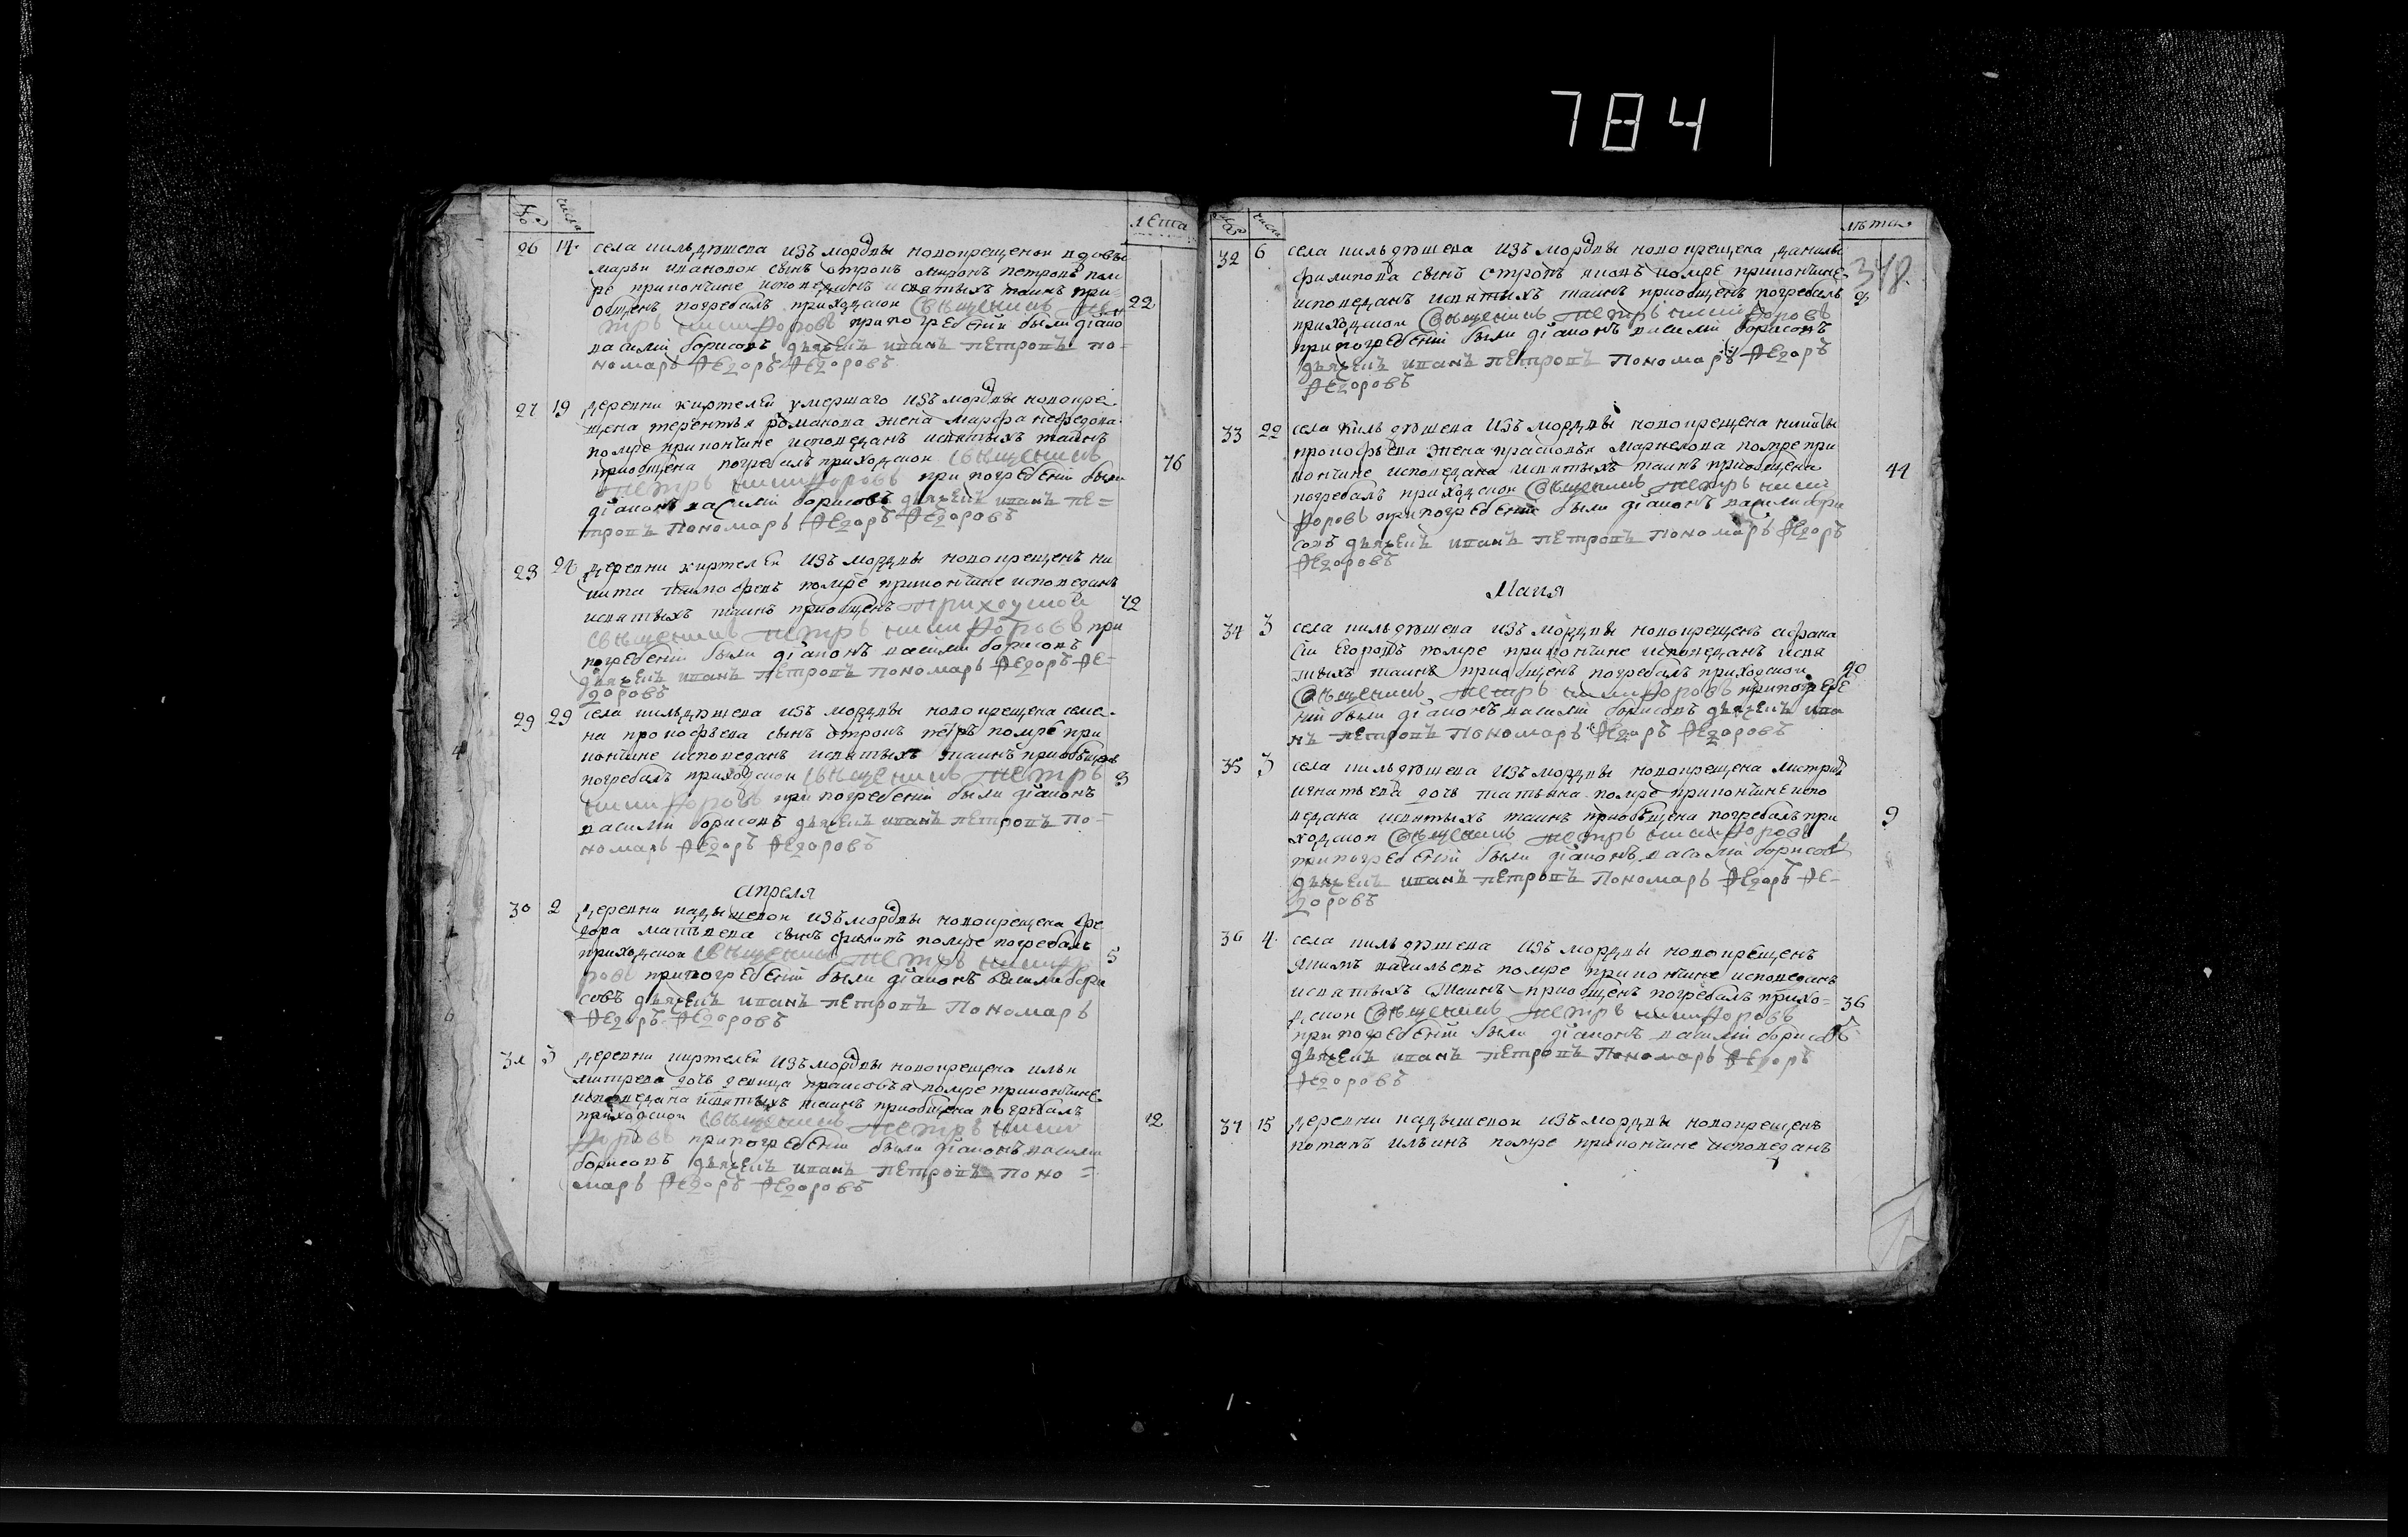 784
№ числа лета
26 14. села кильдюшева изъ мордвы новокрещенои вдовы
марьи ивановои сынъ отрокъ миронъ петровъ пом
ре прикончине исповеданъ исвятыхъ таинъ при
общенъ погребалъ приходскои Священникъ Пе 22
тръ никифоровъ припогребении были диако
василий борисовъ дьячекъ иванъ петровъ по=
номарь Федоръ Федоровъ
27 19 деревни киртелей умершаго изъ мордвы новокре
щена терентья романова жена марфа нефедова
помре прикончине исповедана исвятыхъ таинъ
приобщена погребалъ приходскои Священникъ 76
Петръ никифоровъ припогребении были
диаконъ василий борисовъ дьячекъ иванъ пе=
тровъ Пономарь Федоръ Федоровъ
28 24 деревни киртелей изъ мордвы новокрещенъ ни
кита тимофеевъ помре прикончине исповеданъ
исвятыхъ таинъ приобщенъ Приходскои 72
Священникъ Петръ никифоровъ при
погребении были диаконъ василий борисовъ
дьячекъ иванъ петровъ Пономарь Федоръ Фе=
доровъ
29 29 села кильдюшева изъ мордвы новокрещена семе
на прокофьева сынъ отрокъ петръ помре при
кончине исповеданъ исвятыхъ таинъ приобщенъ
погребалъ приходскои Священникъ Петръ 8
никифоровъ припогребении были диаконъ
василий борисовъ дьячекъ иванъ петровъ по=
номарь Федоръ Федоровъ
апреля
30 2 деревни кадышевои изъ мордвы новокрещена фе
дора матвеева сынъ филипъ помре погребалъ
приходскои Священникъ Петръ никифо 5
ровъ припогребении были диаконъ василий бори
совъ дьячекъ иванъ петровъ Пономарь
Федоръ Федоровъ
31 5 деревни киртелей изъ мордвы новокрещена ильи
митрева дочь девица прасковья помре прикончине
исповедана исвятыхъ таинъ приобщена погребалъ
приходскои Священникъ Петръ ники 12
форовъ припогребении были диаконъ василий
борисовъ дьячекъ иванъ петровъ поно=
марь Федоръ Федоровъ
№ числа лѣта
348.
32 6 села кильдюшева изъ мордвы новокрещена данилы
филипова сынъ отрокъ иванъ помре прикончине
исповеданъ исвятыхъ таинъ приобщенъ погребалъ
приходскои Священникъ Петръ никифоровъ
припогребении были диаконъ василий борисовъ
дьячекъ иванъ петровъ Пономарь Федоръ
Федоровъ
33 22 села кильдюшева изъ мордвы новокрещена никиты
прокофьева жена прасковья маркелова помре при
кончине исповедана исвятыхъ таинъ приобщена 44
погребалъ приходскои Священникъ Петръ ники
форовъ припогребении были диаконъ василий бори
совъ дьячекъ иванъ петровъ Пономарь Федоръ
Федоровъ
Маия
34 3 села кильдюшева изъ мордвы новокрещенъ афана
сiи Егоровъ помре прикончине исповеданъ исвя
тыхъ таинъ приобщенъ погребалъ приходскои 40
Священникъ Петръ никифоровъ припогребе
нии были диаконъ василий борисовъ дьячекъ ива
нъ петровъ Пономарь Федоръ Федоровъ
35 3 села кильдюшева изъ мордвы новокрещена митрия
игнатьева дочь татьяна помре прикончине испо
ведана исвятыхъ таинъ приобщена погребалъ при 9
ходскои Священникъ Петръ никифоровъ
припогребении были диаконъ василий борисовъ
дьячекъ иванъ петровъ Пономарь Федоръ Фе=
доровъ
36 4 села кильдюшева изъ мордвы новокрещенъ
якимъ васильевъ помре прикончине исповеданъ
исвятыхъ таинъ приобщенъ погребалъ прихо= 36
дскои Священникъ Петръ никифоровъ
припогребении были диаконъ василий борисовъ
дьячекъ иванъ петровъ Пономарь Федоръ
Федоровъ
37 15 деревни кадышевои изъ мордвы новокрещенъ
потапъ ильинъ помре прикончине исповеданъ